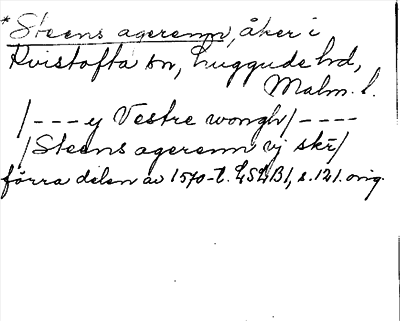 *Steens agerenn, åker i
Kvistofta sn, Luggude hd,
Malm. l.
/---y Vestre wongh/----
/Steens agerenn vj skr/
förra delen av 1570-t. LSLB1, s. 121. orig.